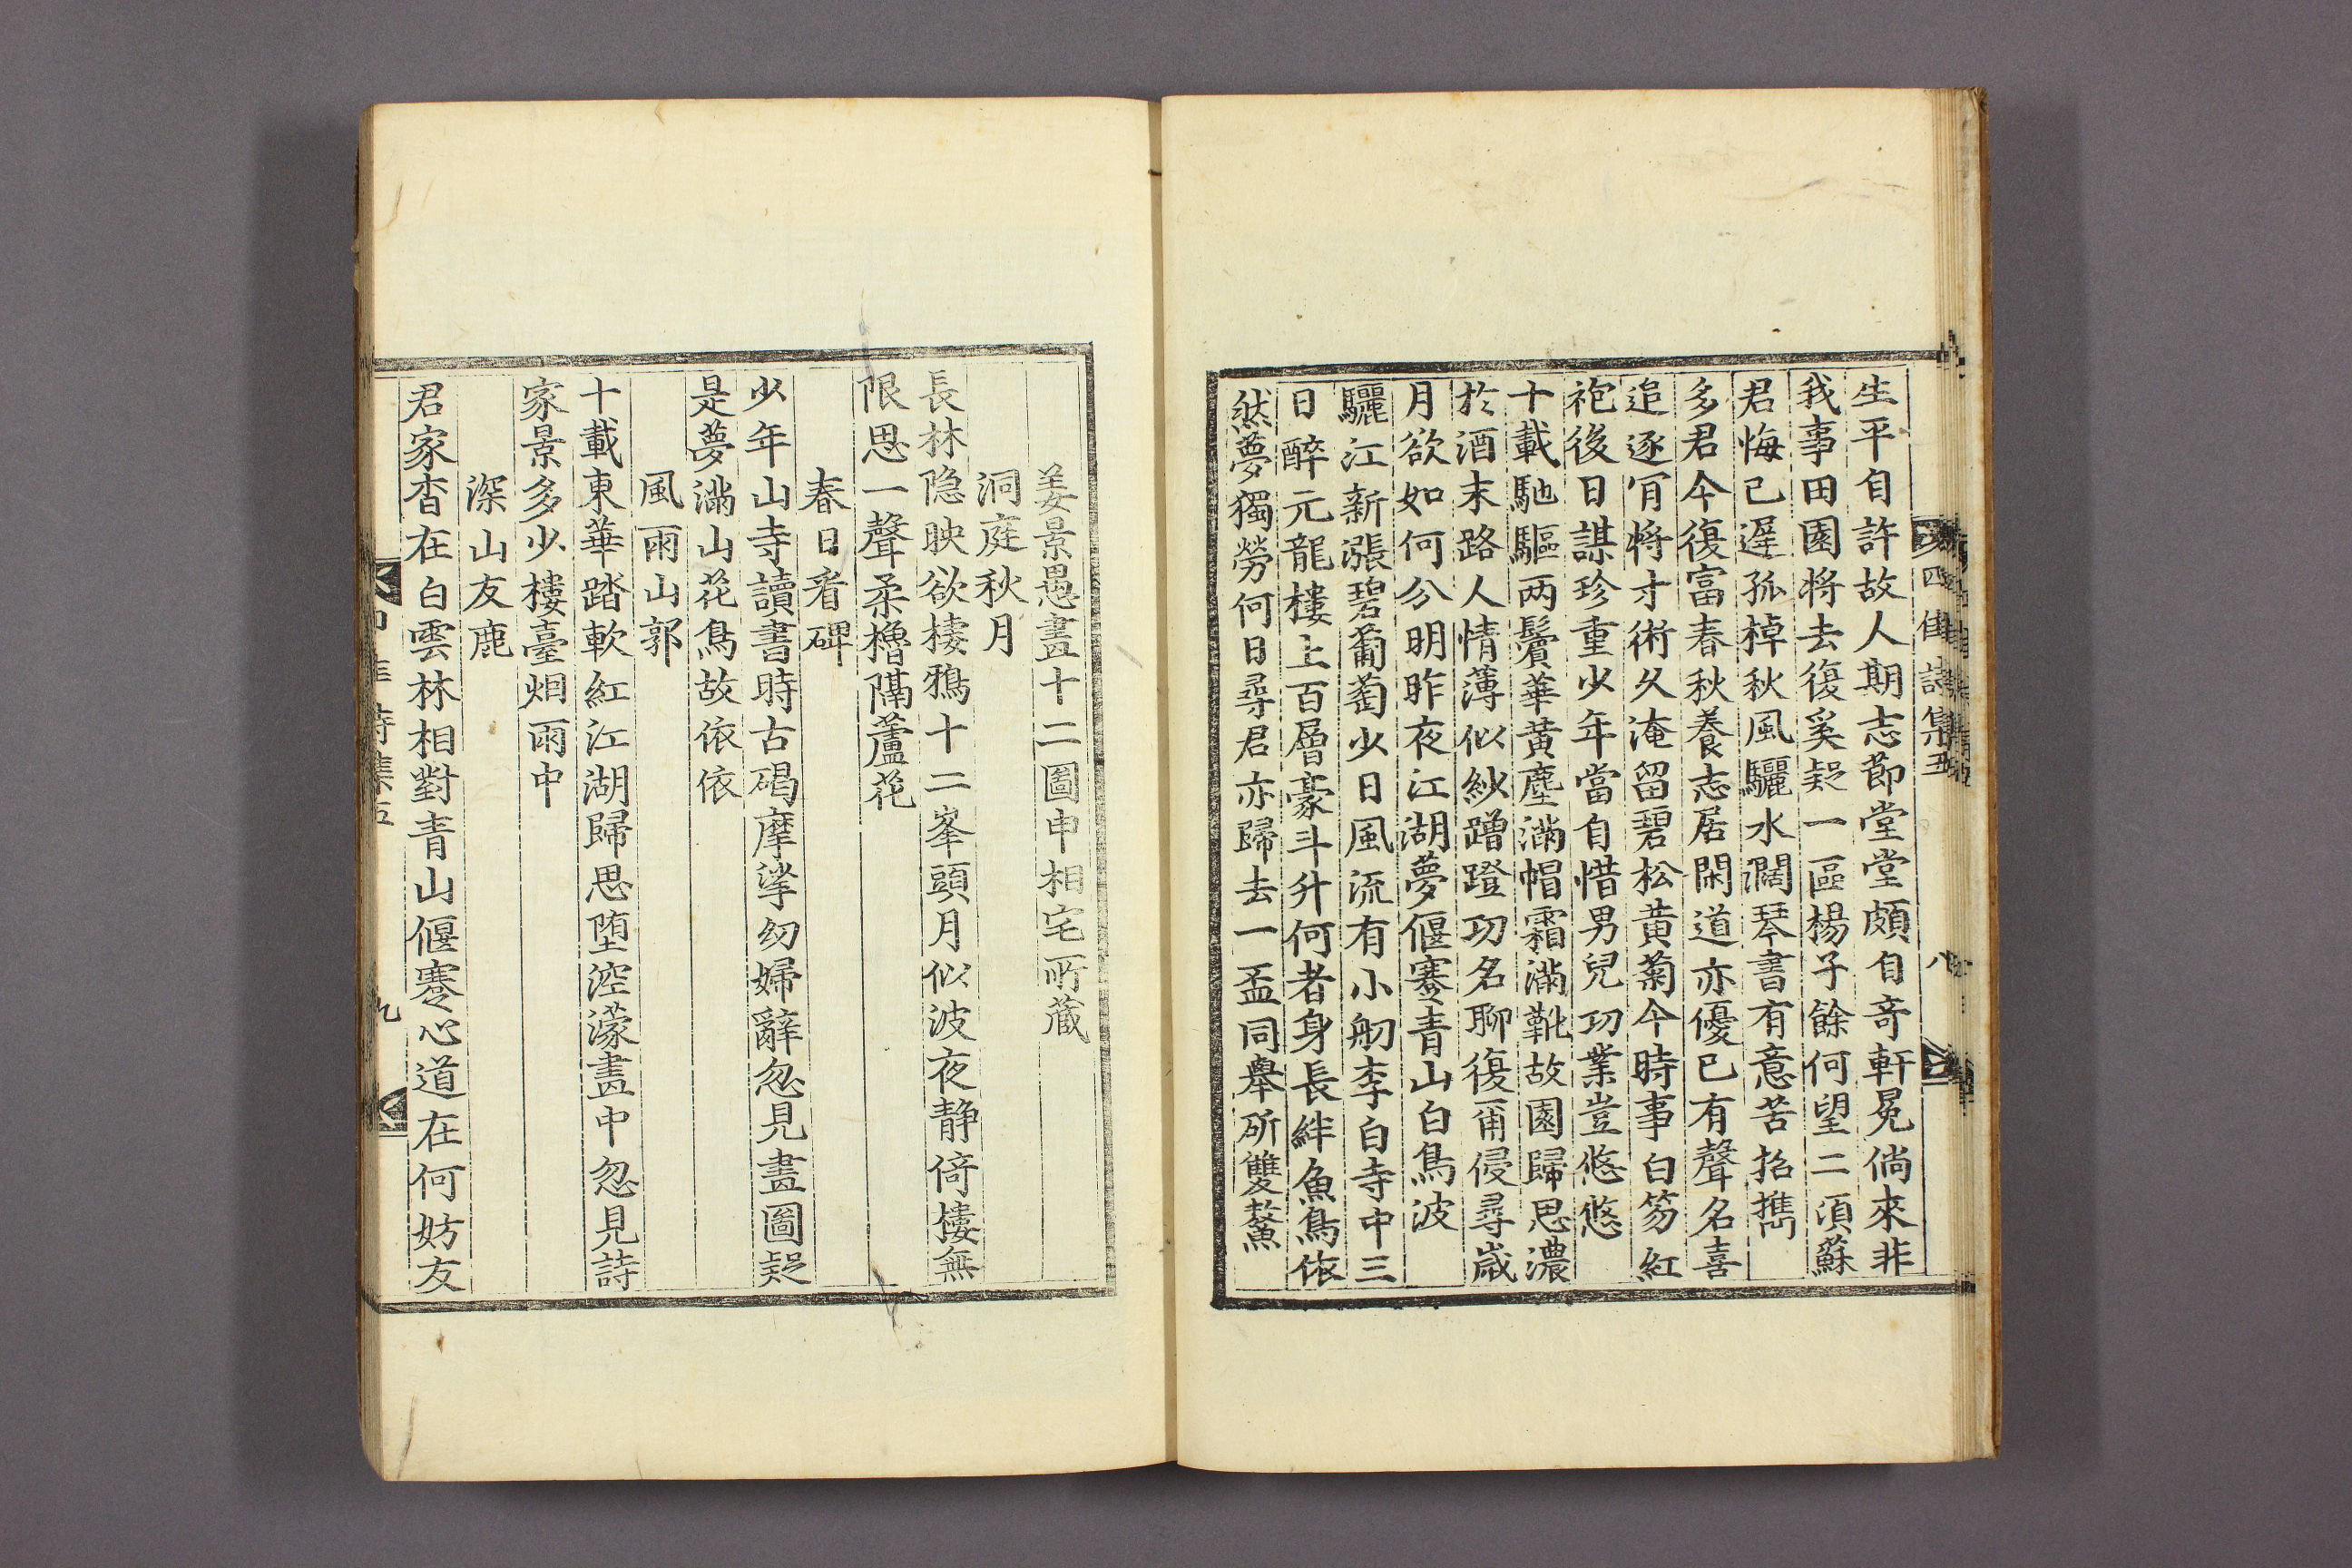 生平自許故人期志節堂堂頗自奇軒冕倘來非
我事田園將去復奚疑一區楊子餘何望二頃蘇
君悔已遲孤棹秋風驪水濶琴書有意苦招擕
多君今復富春秋養志居閑道亦優已有聲名喜
追逐肎將才術久淹留碧松黃菊今時事白笏紅
袍後日謀珍重少年當自惜男兒功業豈悠悠
十載馳驅两鬢華黃塵滿帽霜滿靴故園歸思濃
於酒末路人情薄似紗蹭蹬功名聊復甭侵尋歲
月欲如何分明昨夜江湖夢偃蹇青山白鳥波
驪江新漲碧葡萄少日風流有小舠李白寺中三
日醉元龍樓上百層豪斗升何者身長絆魚鳥依
然夢獨勞何日尋君亦歸去一盃同舉斫雙螯
四佳詩集五
八
姜景愚畫十二圖申相宅所藏
洞庭秋月
長林隐映欲棲鴉十二峯頭月似波夜静倚樓無
限思一聲柔櫓隔蘆花
春日看碑
少年山寺讀書時古碣摩挲幼婦辭忽見畫圖疑
是夢滿山花鳥故依依
風雨山郭
十載東華踏軟紅江湖歸思堕涳濛畫中忽見詩
家景多少樓臺烟雨中
深山友鹿
君家杳在白雲林相對青山偃蹇心道在何妨友
九